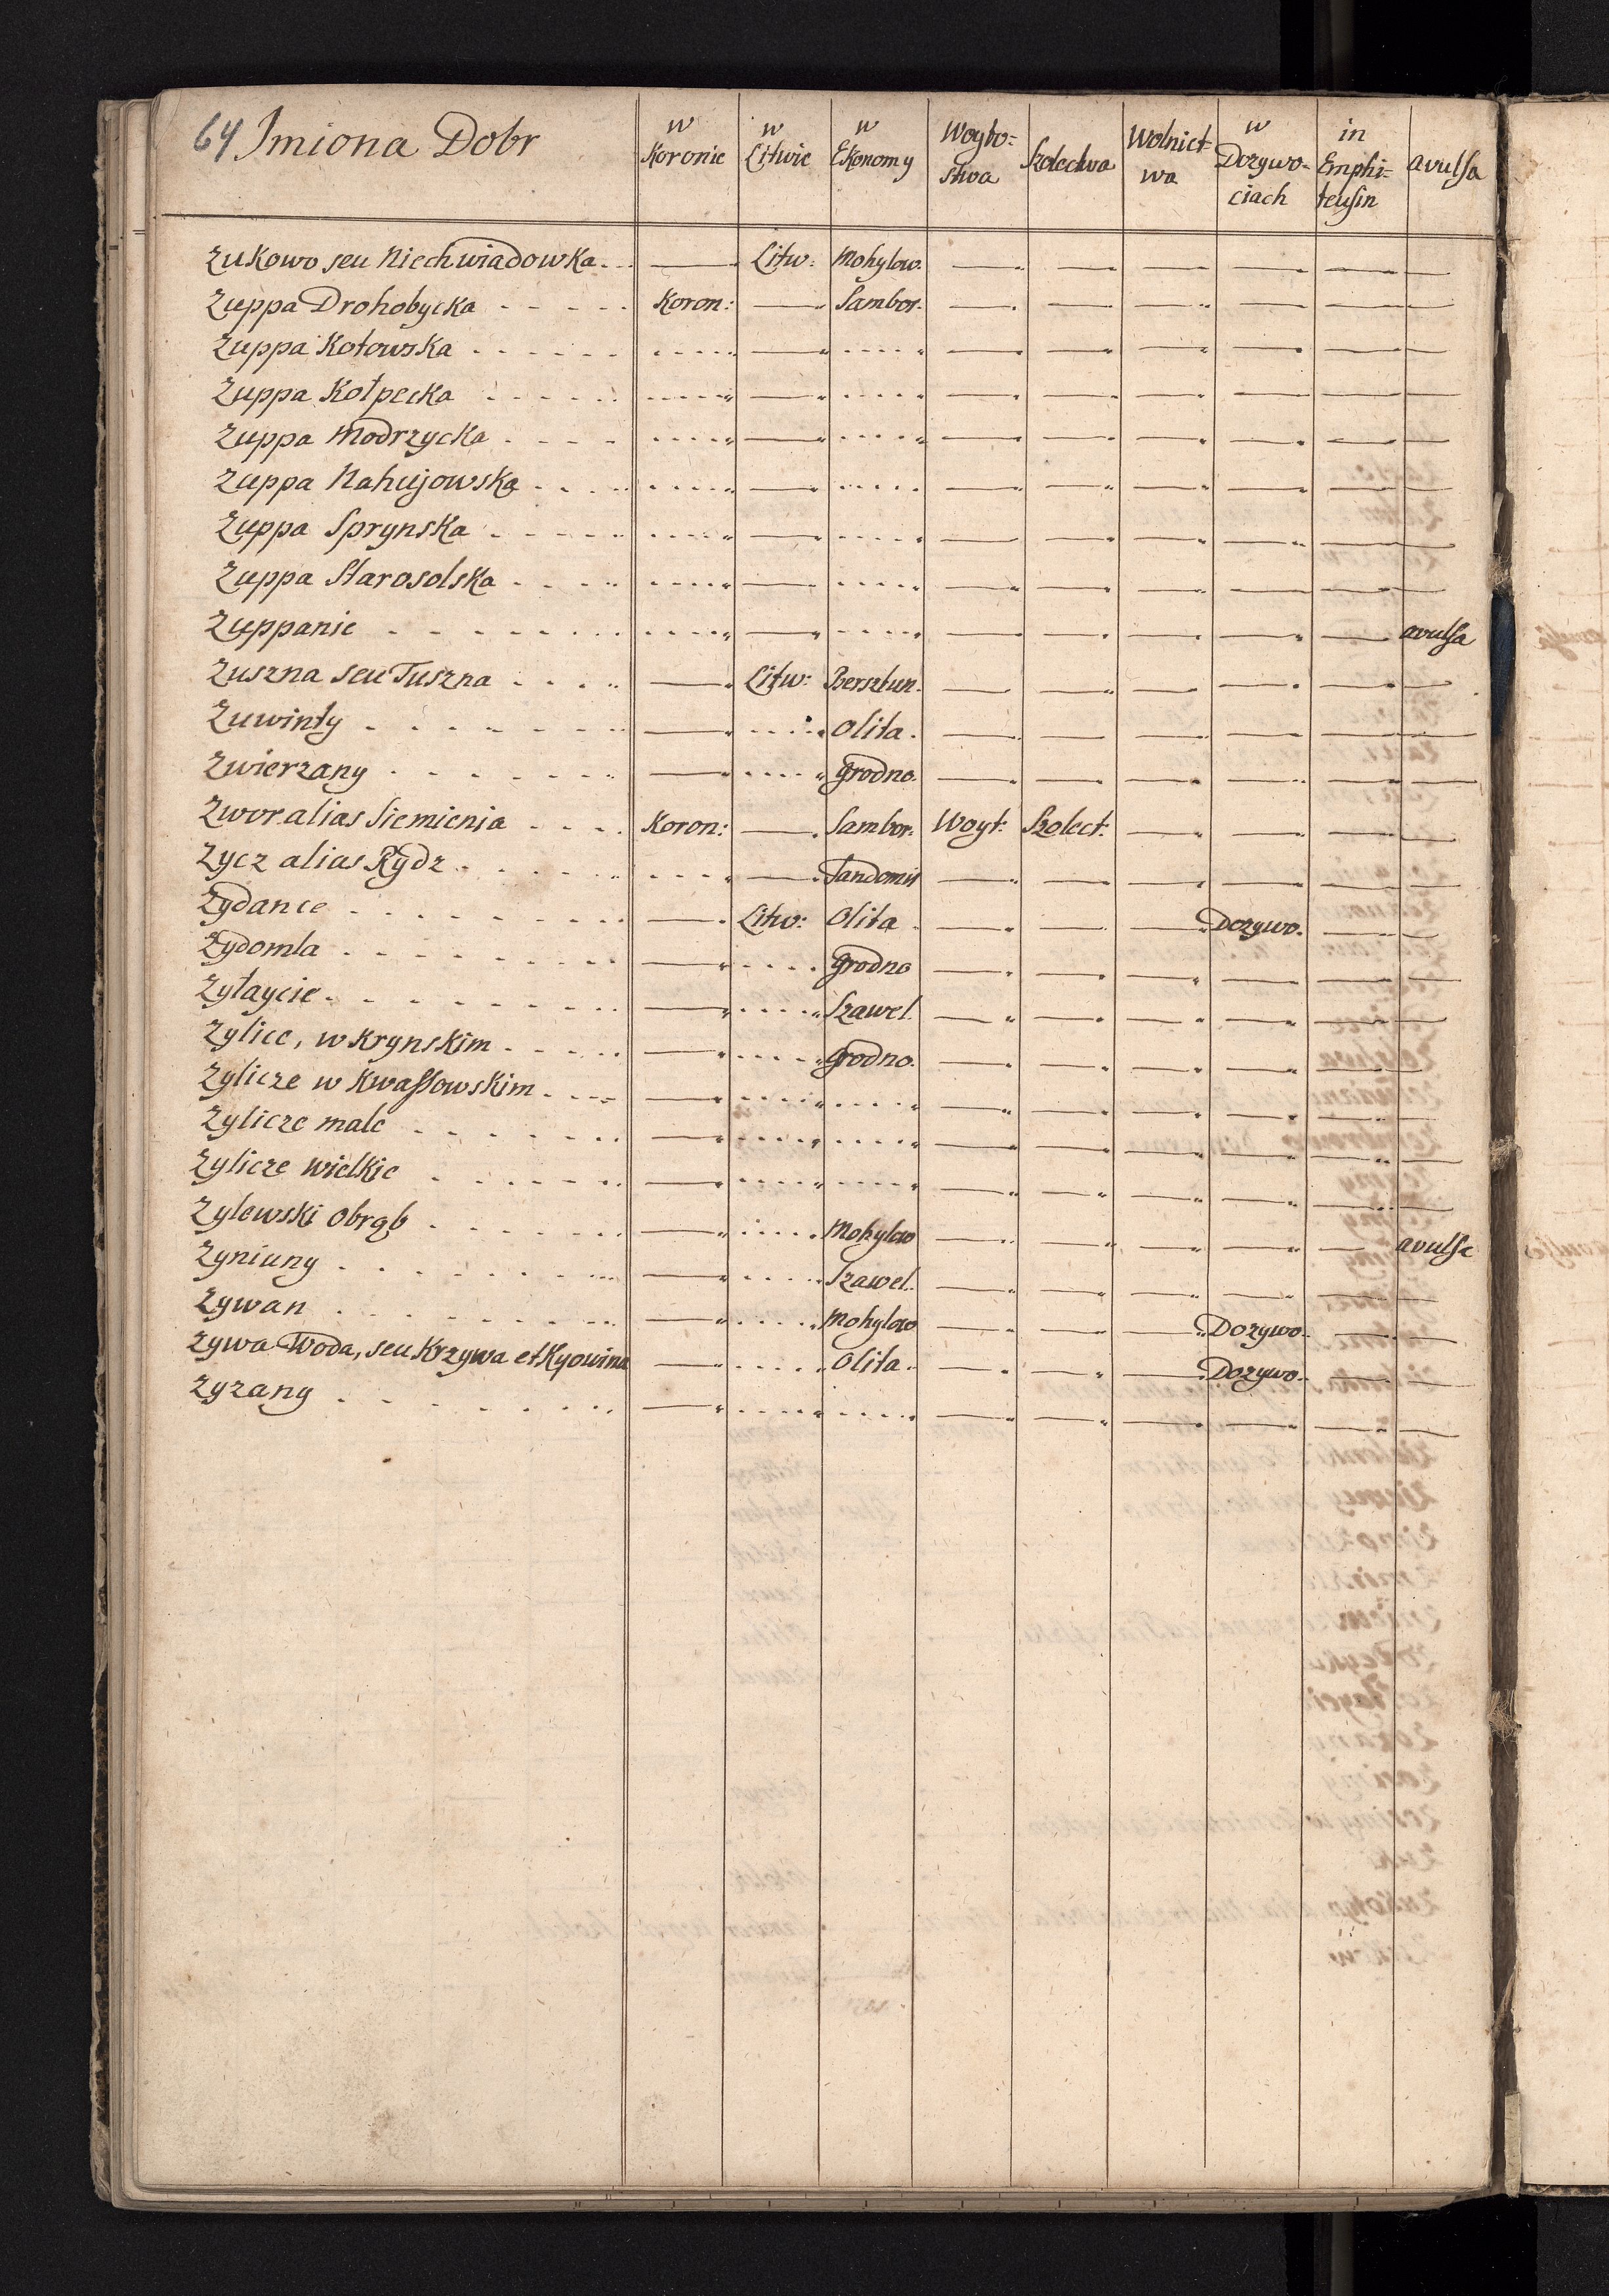 64 Imiona Dobr | w Koronie | w Litwie | w Ekonomy | Woyto=stwa | Szolectwa | Wolnict=wa | w Dozywo=ciach | in Emphi=teusin | avulsa
Zukowo seu Niechwiadowka | — | Litw: | Mohylow. | — | — | — | — | — | —
Zuppa Drohobycka | Koron: | — | Sambor. | — | — | — | — | — | —
Zuppa Kotowska | ..... | — | .... | — | — | — | — | — | —
Zuppa Kotpecka | ..... | — | .... | — | — | — | — | — | —
Zuppa Modrzycka | ..... | — | .... | — | — | — | — | — | —
Zuppa Nahujowska | ..... | — | .... | — | — | — | — | — | —
Zuppa Sprynska | ..... | — | .... | — | — | — | — | — | —
Zuppa Starosolska | ..... | — | .... | — | — | — | — | — | —
Zuppanie | ..... | — | .... | — | — | — | — | — | avulsa
Zuszna seu Tuszna | — | Litw: | Bersztun. | — | — | — | — | — | —
Zuwinty | — | .... | Olita. | — | — | — | — | — | —
Zwierzany | — | .... | Grodno. | — | — | — | — | — | —
Zwor alias Siemienia | Koron: | — | Sambor: | Woyt: | Szolect: | — | — | — | —
Zycz alias Rydz | .... | — | Sandomir | — | — | — | — | — | —
Zydance | — | Litw: | Olita | — | — | — | Dozywo. | — | —
Zydomla | — | .... | Grodno | — | — | — | — | — | —
Zytaycie | — | .... | Szawel. | — | — | — | — | — | —
Zylice, w Krynskim | — | .... | Grodno. | — | — | — | — | — | —
Zylicze w Kwassowskim | — | .... | .... | — | — | — | — | — | —
Zylicze male | — | .... | .... | — | — | — | — | — | —
Zylicze wielkie | — | .... | .... | — | — | — | — | — | —
Zylewski Obrąb | — | .... | Mohylow | — | — | — | — | — | avulsa
Zyniuny | — | .... | Szawel. | — | — | — | — | — | —
Zywan | — | .... | Mohylow | — | — | — | Dozywo. | — | —
Zywa Woda, seu Krzywa et Kyowina | — | .... | Olita. | — | — | — | Dozywo. | — | —
Zyzany | — | .... | .... | — | — | — | — | — | —